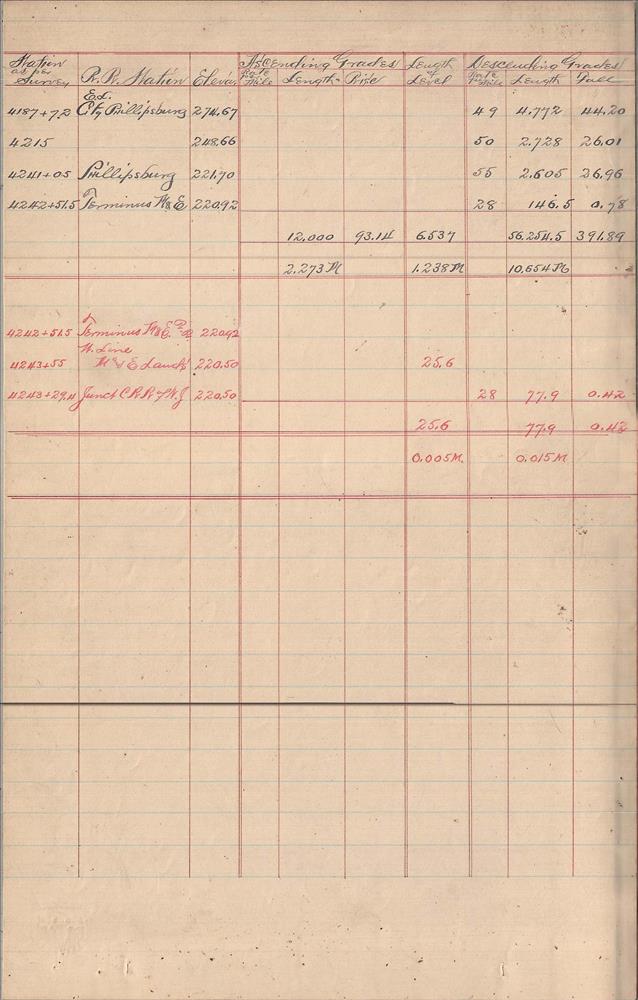 Station as per Survey R. R. Station Elevа. Ascending Grades Length of Level Descending Grades
Rate pr Mile Length Rise Rate pr Mile Length Fall
Ed.
4187+72 Phillipsburg 274.67 49 4.772 44.20
4215 248.66 50 2.728 26.01
4241+05 Phillipsburg 221.70 55 2.605 26.96
4242+51.5 Terminus M&E 220.92 28 146.5 0.78
12.000 93.14 6.537 56.254.5 391.89
2.273 M 1.238 M 10.654 M
4242+51.5 Terminus M&E 220.92
W. Line
4243+55 M&E Land 220.50 25.6
4243+29.4 Junct C R R of N. J 220.50 28 77.9 0.42
25.6 77.9 0.42
0.005 M. 0.015 M